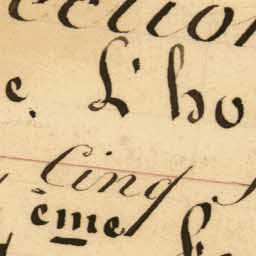 ection
e. L'ho
Cinq
ème